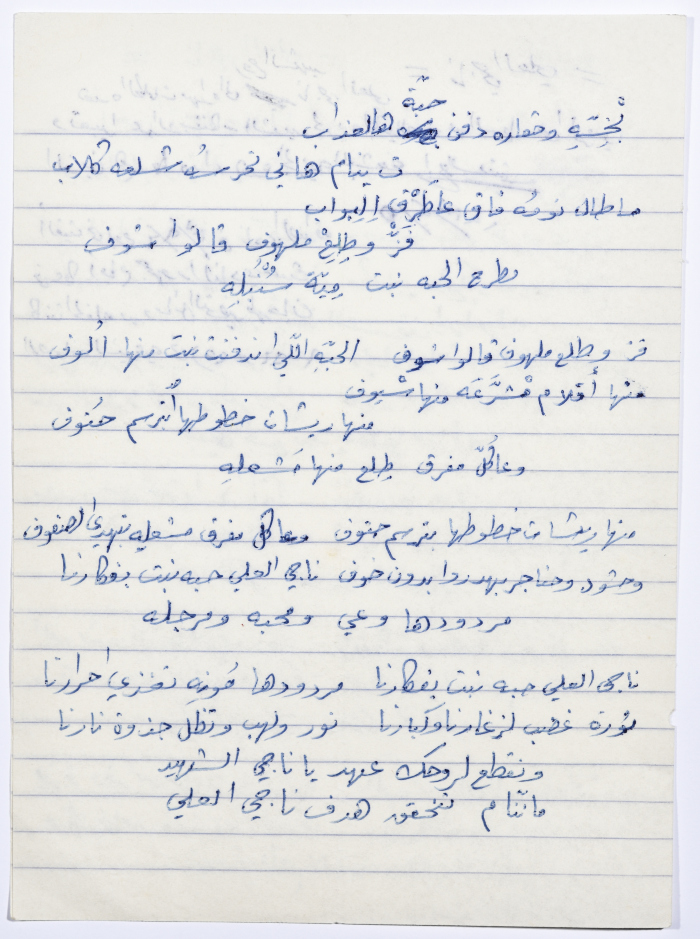 بخِسِّةِ وحقاره دفن حبّة هالعذاب
ت ينام هاني تحرسُه شلعه كلاب
ماطال نومُه فاق عاطَرْق اِلبواب
فَزّ وطِلِعْ ملهوف قالوا شوف
بطرح الحبه نبت مِيّة سُنْبُلِهِ
فز وطلع ملهوف قالوا شوف الحبّهِ اللّي اندفنت نبت منها أُلوف
منها أقلام مْشرَّعَه منها سْيوف
منها ريشات خطوطها اُبْترسم حْتوف
وعاكُلّ مفرق طِلِع منها مَشعلِهِ
منها ريشات خطوطها بترسم حتوف وعاكل مفرق مشعلِه بتهدي الصفوف
وحشود وحناجر بهدروا بدون خوف ناجي العلي حبه نبتت بفكارنا
مردودها وعي ومحبه ومرجله
ناجي العلي حبه نبتت بفكارنا مردودها مُونِه تغذي احرارنا
ثورة غضب لزغارنا وكبارنا نور ولهب وتظل جذوة نارنا
ونقطع لروحك عهد يا ناجي الشهيد
ما ننام تنحقق هدف ناجي العلي